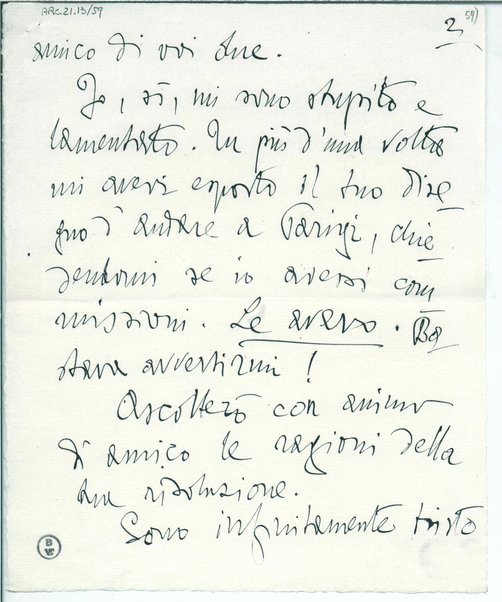 ARC.21.13/59
59)
2
amico di voi due.
Io, sì, mi sono stupito e
lamentato. Tu più d'una volta
mi avevi esposto il tuo dise
gno d'andare a Parigi, chie
dendomi se io avessi com
missioni. Le avevo. Ba
stava avvertirmi!
Ascolterò con animo
di amico le ragioni della
tua risoluzione.
Sono infinitamente tristo